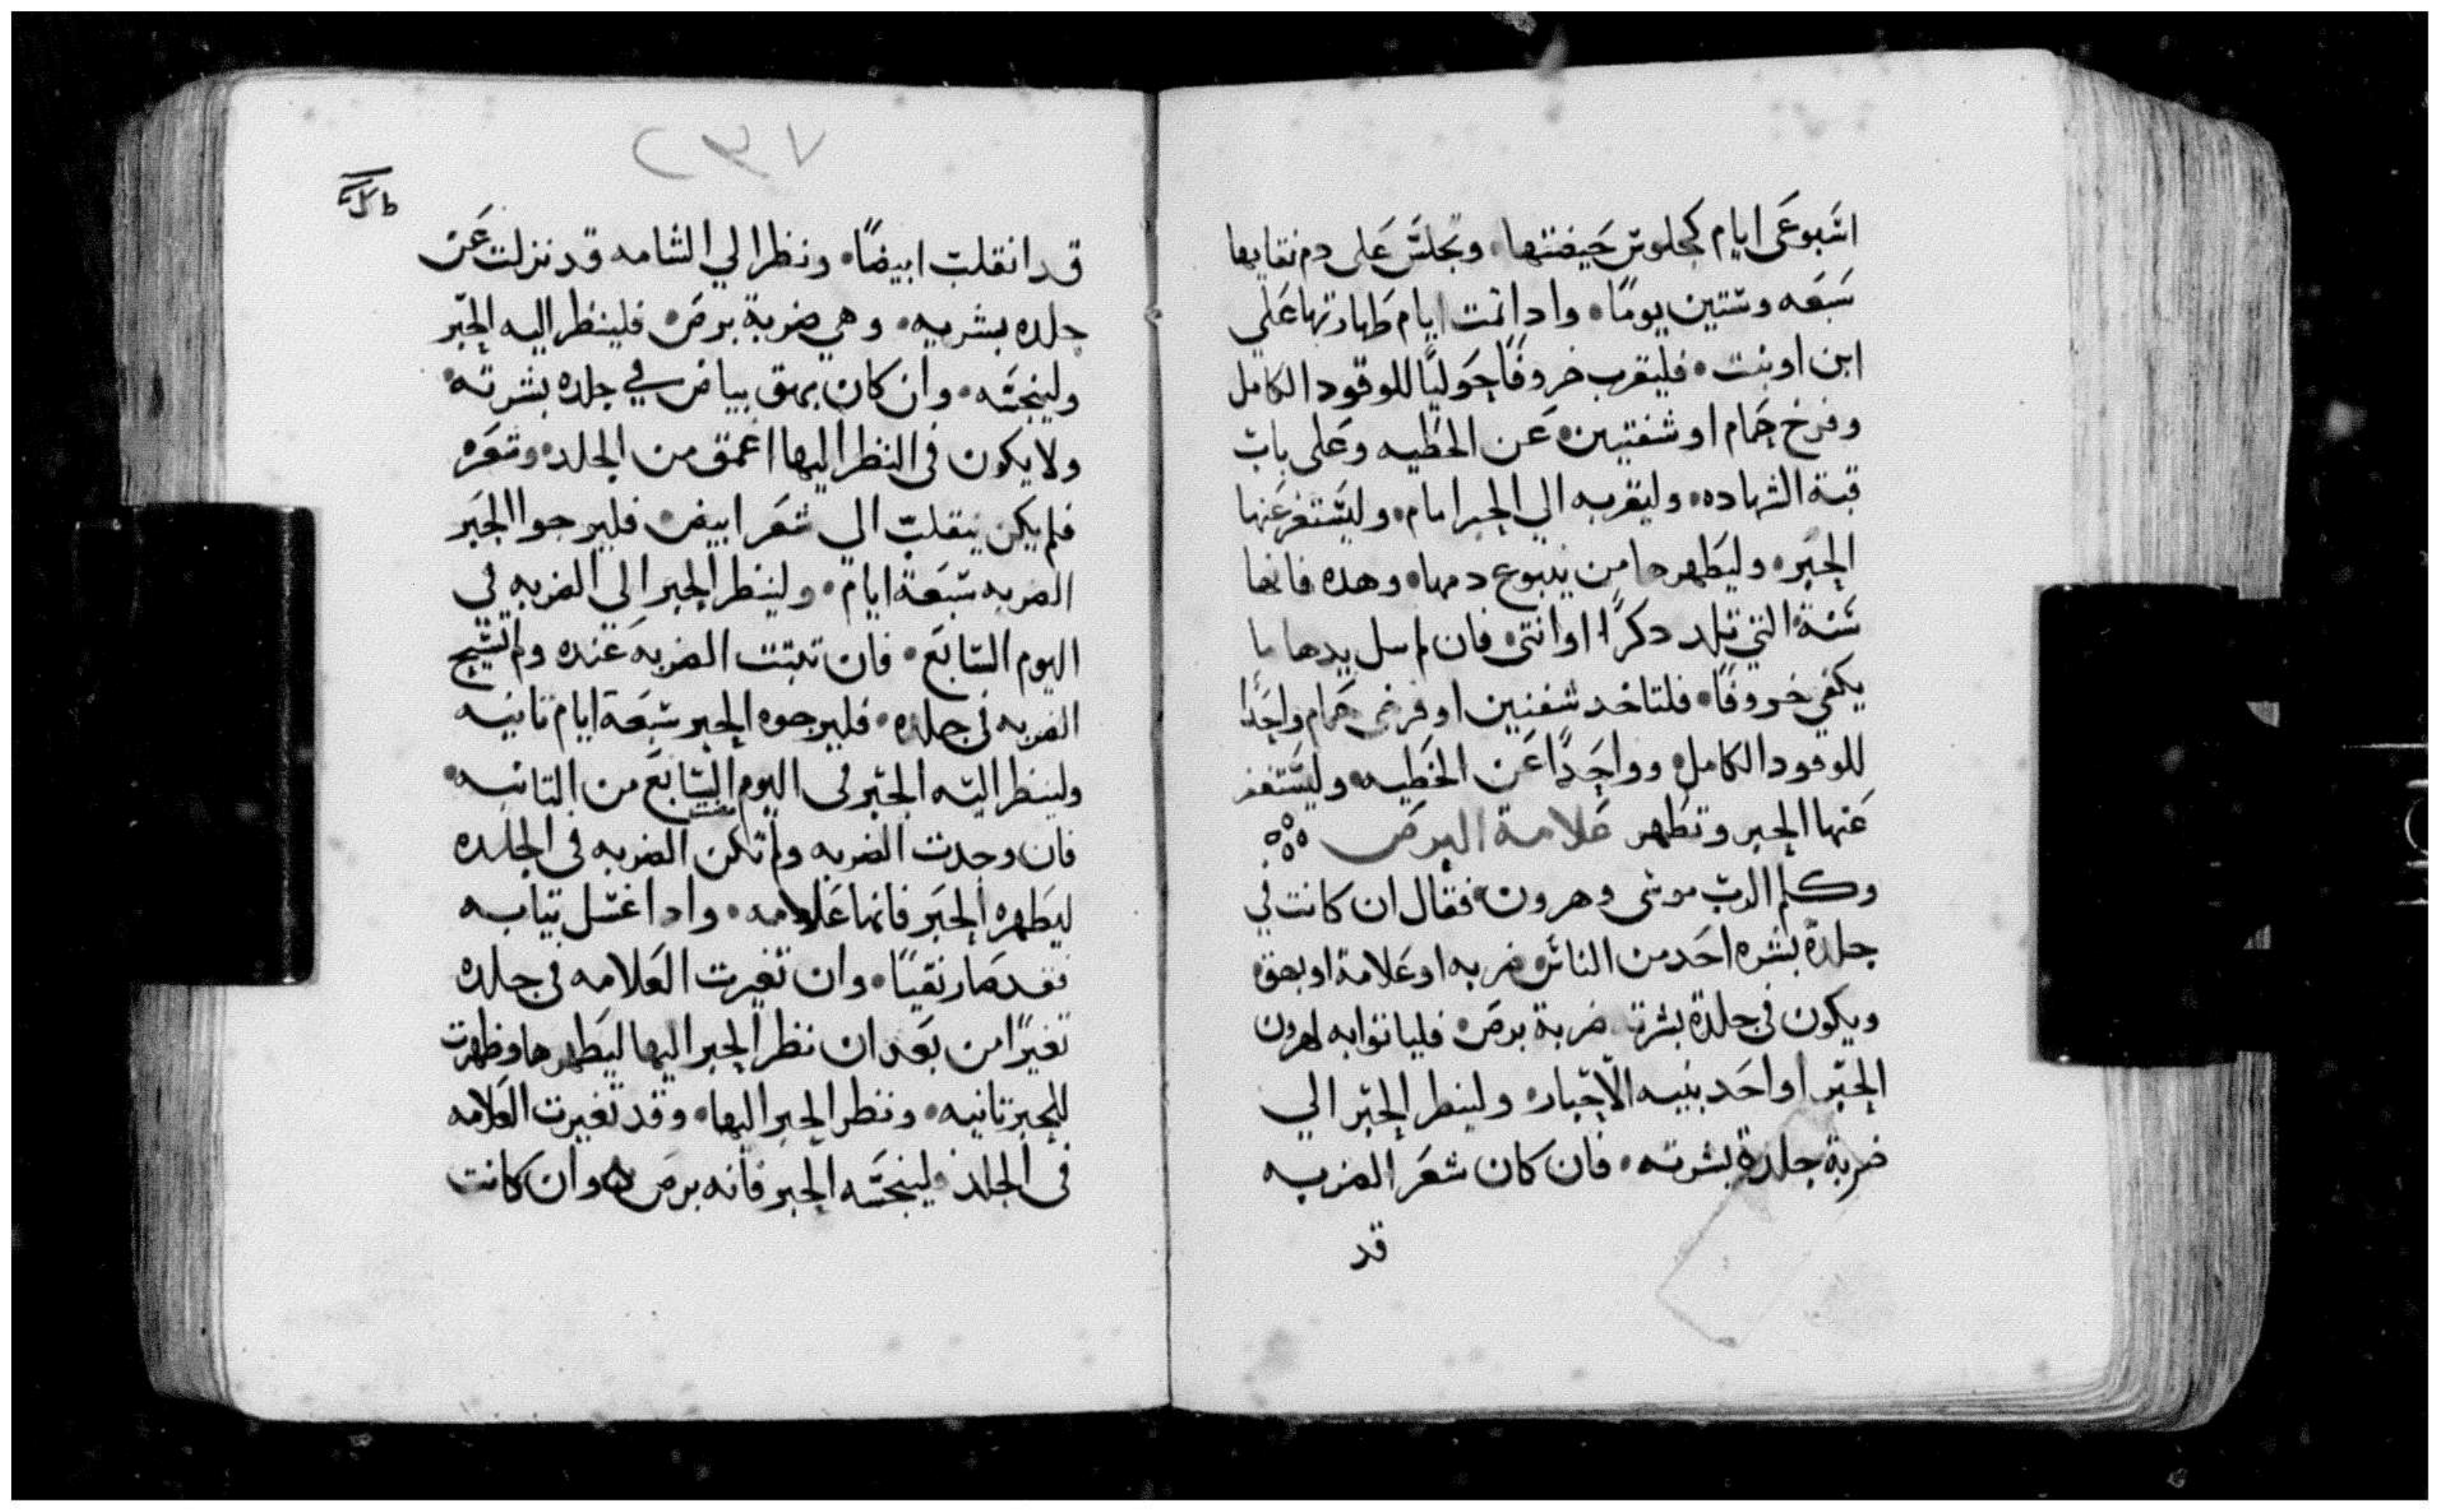 اسبوعى ايام كجلوس حيضتها، وتجلس على دم نقايها
سبعه وستين يومًا، وادا تمت ايام طهارتها على
ابن او بنت، فليقرب خروفًا حوليًا للوقود الكامل
وفرخ حمام او شفنين، عن الخطيه وعلى باب
قبة الشهاده، وليقربه الي الحبر امام، وليستغفر عنها
الحبر، وليطهرها من ينبوع دمها، وهده فانها
سنة، التي تلد دكرًا او انتى، فان لم سل يدها ما
يكفي خروفًا، فلتاخد شفنين او فرخى حمام واحدًا
للوقود الكامل، وواحدًا عن الخطيه، وليستغفر
عنها الحبر وتطهر علامة البرص
وكلم الرب موسى وهرون، فقال ان كانت في
جلدة بشره احد من الناس، ضربه او علامة او بهق،
ويكون في جلدة بشرته ضربة برص، فلياتوا به لهرون
الحبر او احد بنيه الاحبار، ولينظر الحبر الي
ضربة جلدة بشرته، فان كان شعر الضربه
قد
٢٣٧
قد انقلبت ابيضًا، ونظر الي الشامه قد نزلت عن
جلده بشريه، وهي ضربة برص، فلينظر اليه الحبر
ولينجسه، وان كان بهق بياض في جلده بشرته،
ولا يكون في النظر اليها اعمق من الجلد، وشعره
فلم يكن ينقلب الي شعر ابيض، فليرجوا الحبر
الضربه سبعة ايام، ولينظر الحبر الي الضربه في
اليوم السابع، فان تبتت الضربه عنده ولم تسيح
الضربه في جلده، فليرجوه الحبر سبعة ايام تانيه
ولينظر اليه الحبر في اليوم السابع من التانيه،
فان وجدت الضربه ولم تكن الضربه في الجلده
ليطهره الحبر فانها علامه، وادا غسل تيابه
فقد صار نقيًا، وان تغيرت العلامه في جلده
تغيرًا من بعد ان نظر الحبر اليها ليطهرها وظهرت
للحبر تانيه، وننظر الحبر اليها، وقد تغيرت العلامه
في الجلد، ولينجسه الحبر فانه برص، وان كانت